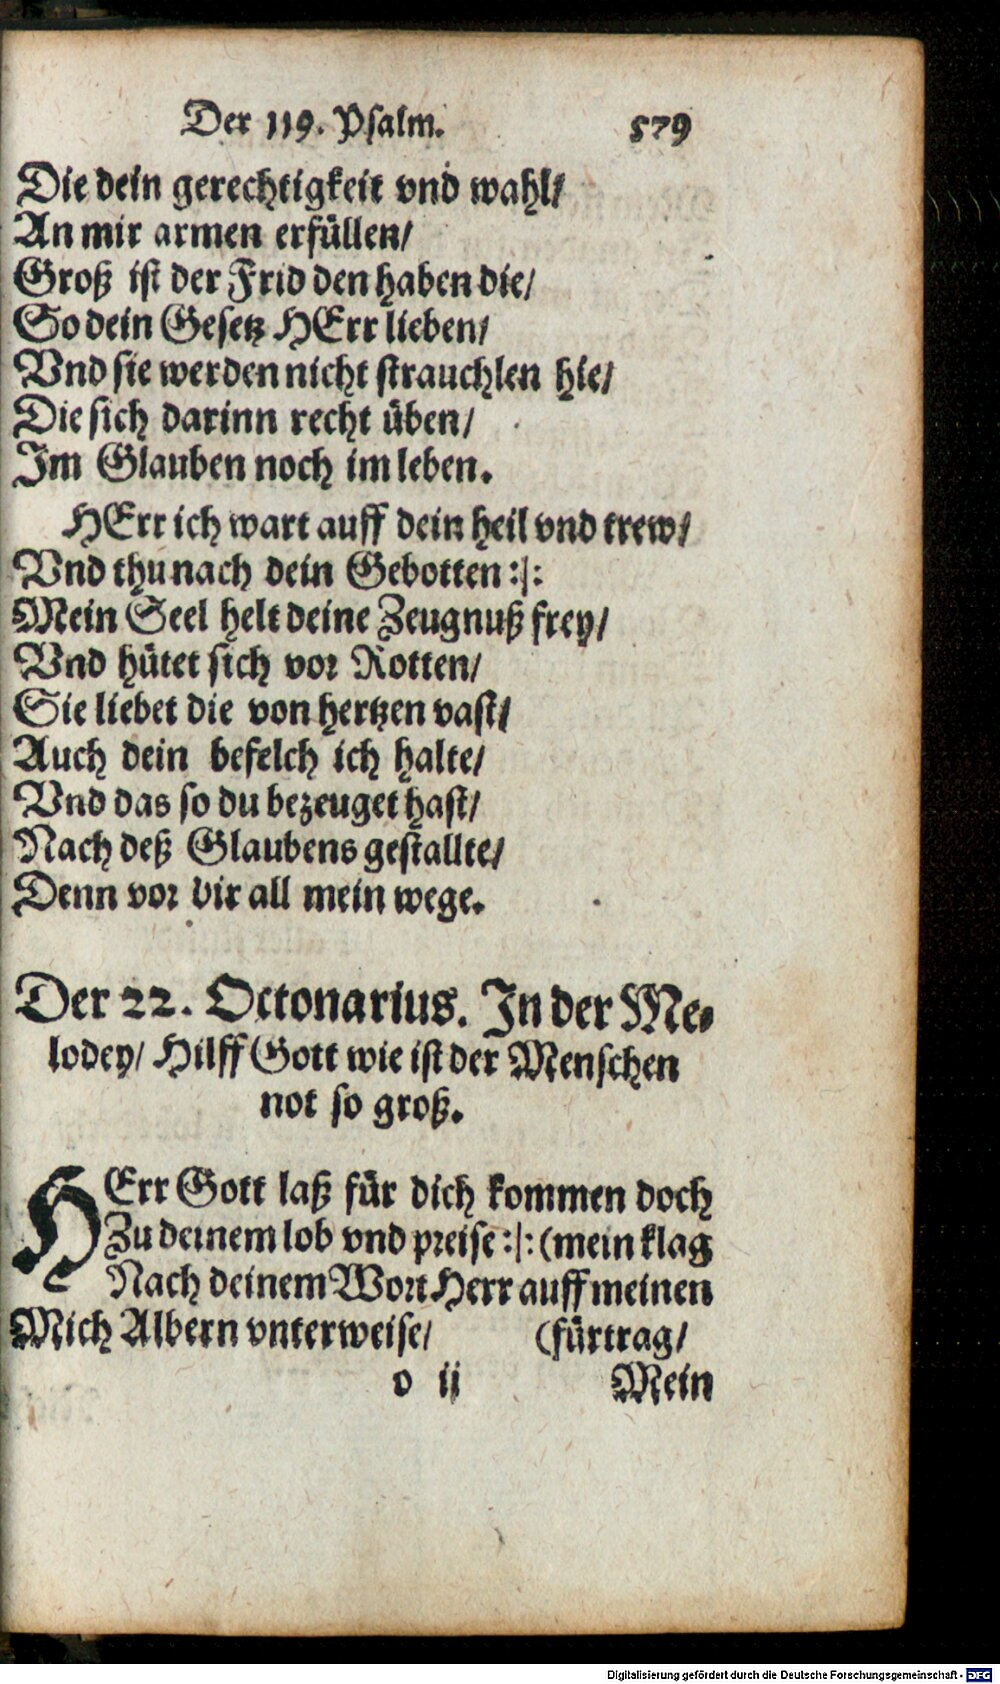 Der 119. Psalm. 579
Die dein gerechtigkeit vnd wahl/
An mir armen erfüllen/
Groß ist der Frid den haben die/
So dein Gesetz HErr lieben/
Vnd sie werden nicht strauchlen hie/
Die sich darinn recht üben/
Im Glauben noch im leben.
HErr ich wart auff dein heil vnd trew/
Vnd thu nach dein Gebotten :|:
Mein Seel helt deine Zeugnuß frey/
Vnd hütet sich vor Rotten/
Sie liebet die von hertzen vast/
Auch dein befelch ich halte/
Vnd das so du bezeuget hast/
Nach deß Glaubens gestallte/
Denn vor dir all mein wege.
Der 22. Octonarius. In der Me-
lodey/ Hilff Gott wie ist der Menschen
not so groß.
HErr Gott laß für dich kommen doch
Zu deinem lob vnd preise :|: (mein klag
Nach deinem Wort Herr auff meinen
Mich Albern vnterweise/ (fürtrag/
o ij Mein
Digitalisierung gefördert durch die Deutsche Forschungsgemeinschaft - DFG